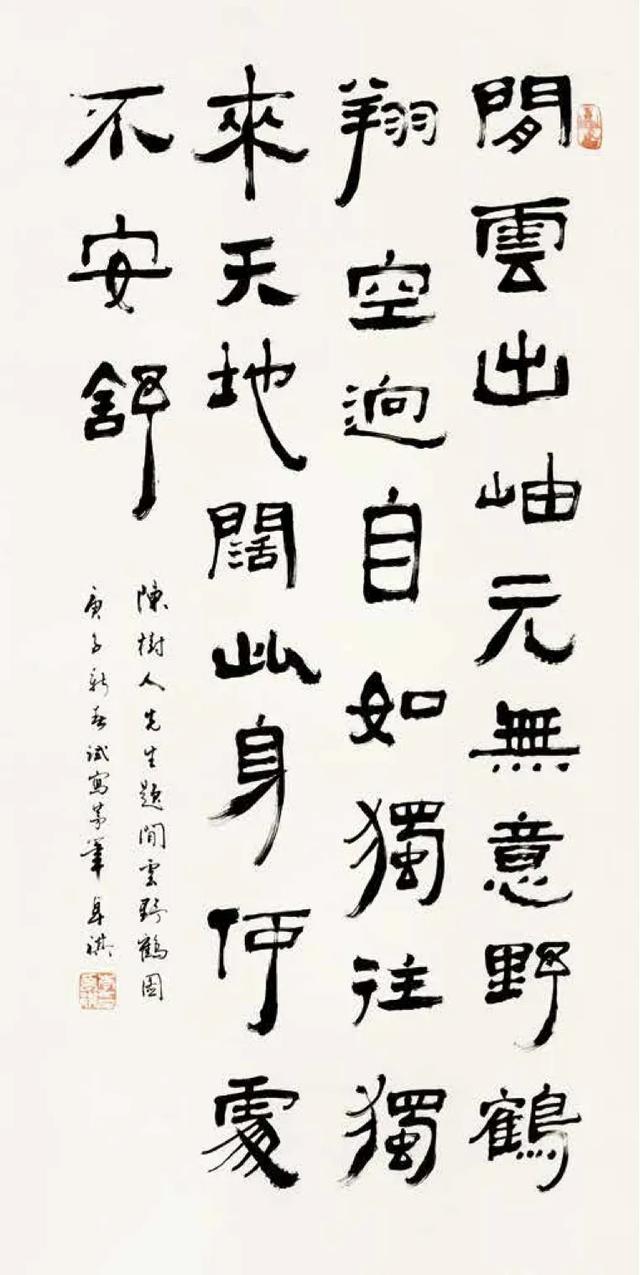 閒雲出岫元無意野鶴
翔空迥自如獨往獨
來天地闊此身何處
不安舒
陳樹人先生題閒雲野鶴圖
庚子新春試寫茅筆卓祺